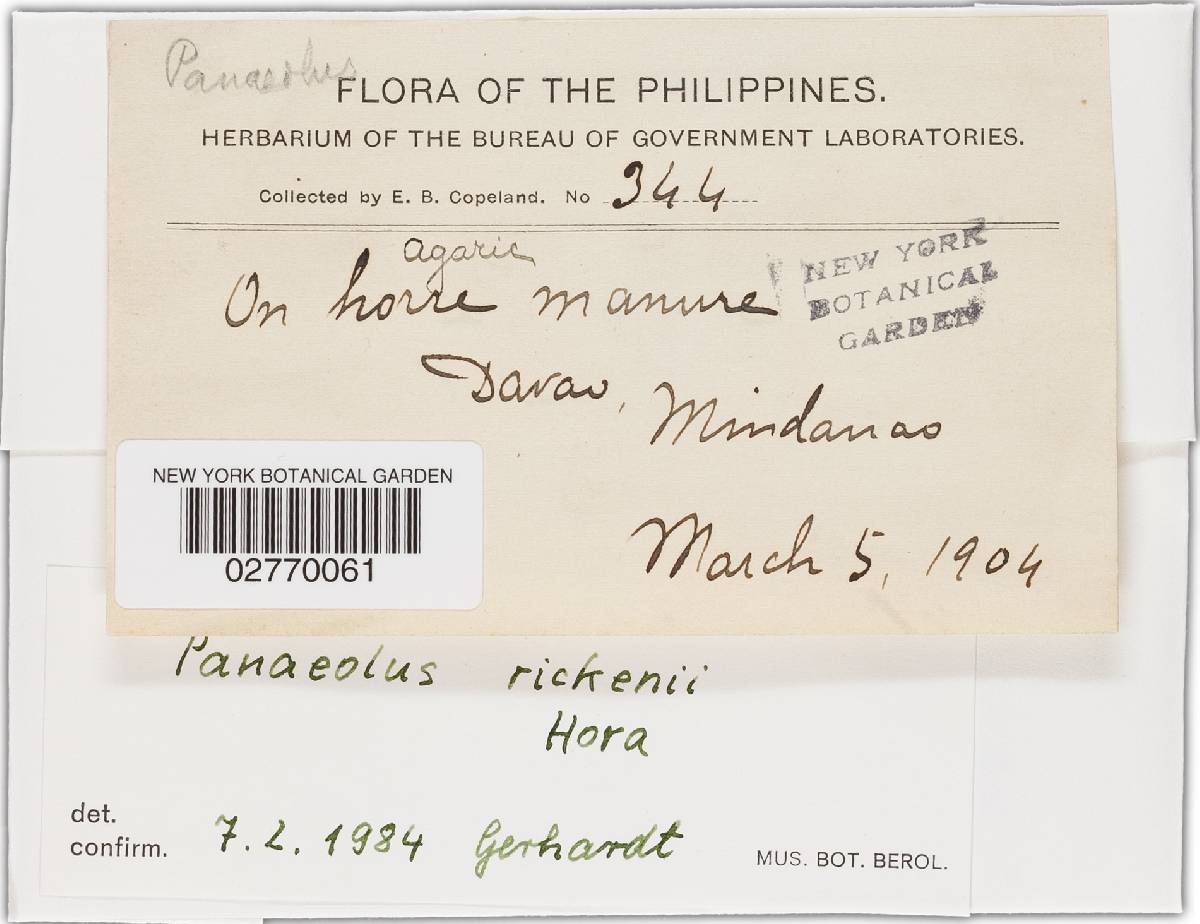 Panaeolus
FLORA OF THE PHILIPPINES.
HERBARIUM OF THE BUREAU OF GOVERNMENT LABORATORIES.
Collected by E. B. Copeland. No 344
agaric
On horse manure
NEW YORK
BOTANICAL
GARDEN
Davao, Mindanao
March 5, 1904
NEW YORK BOTANICAL GARDEN
02770061
Panaeolus rickenii
Hora
det.
confirm. 7.2.1984 Gerhardt
MUS. BOT. BEROL.